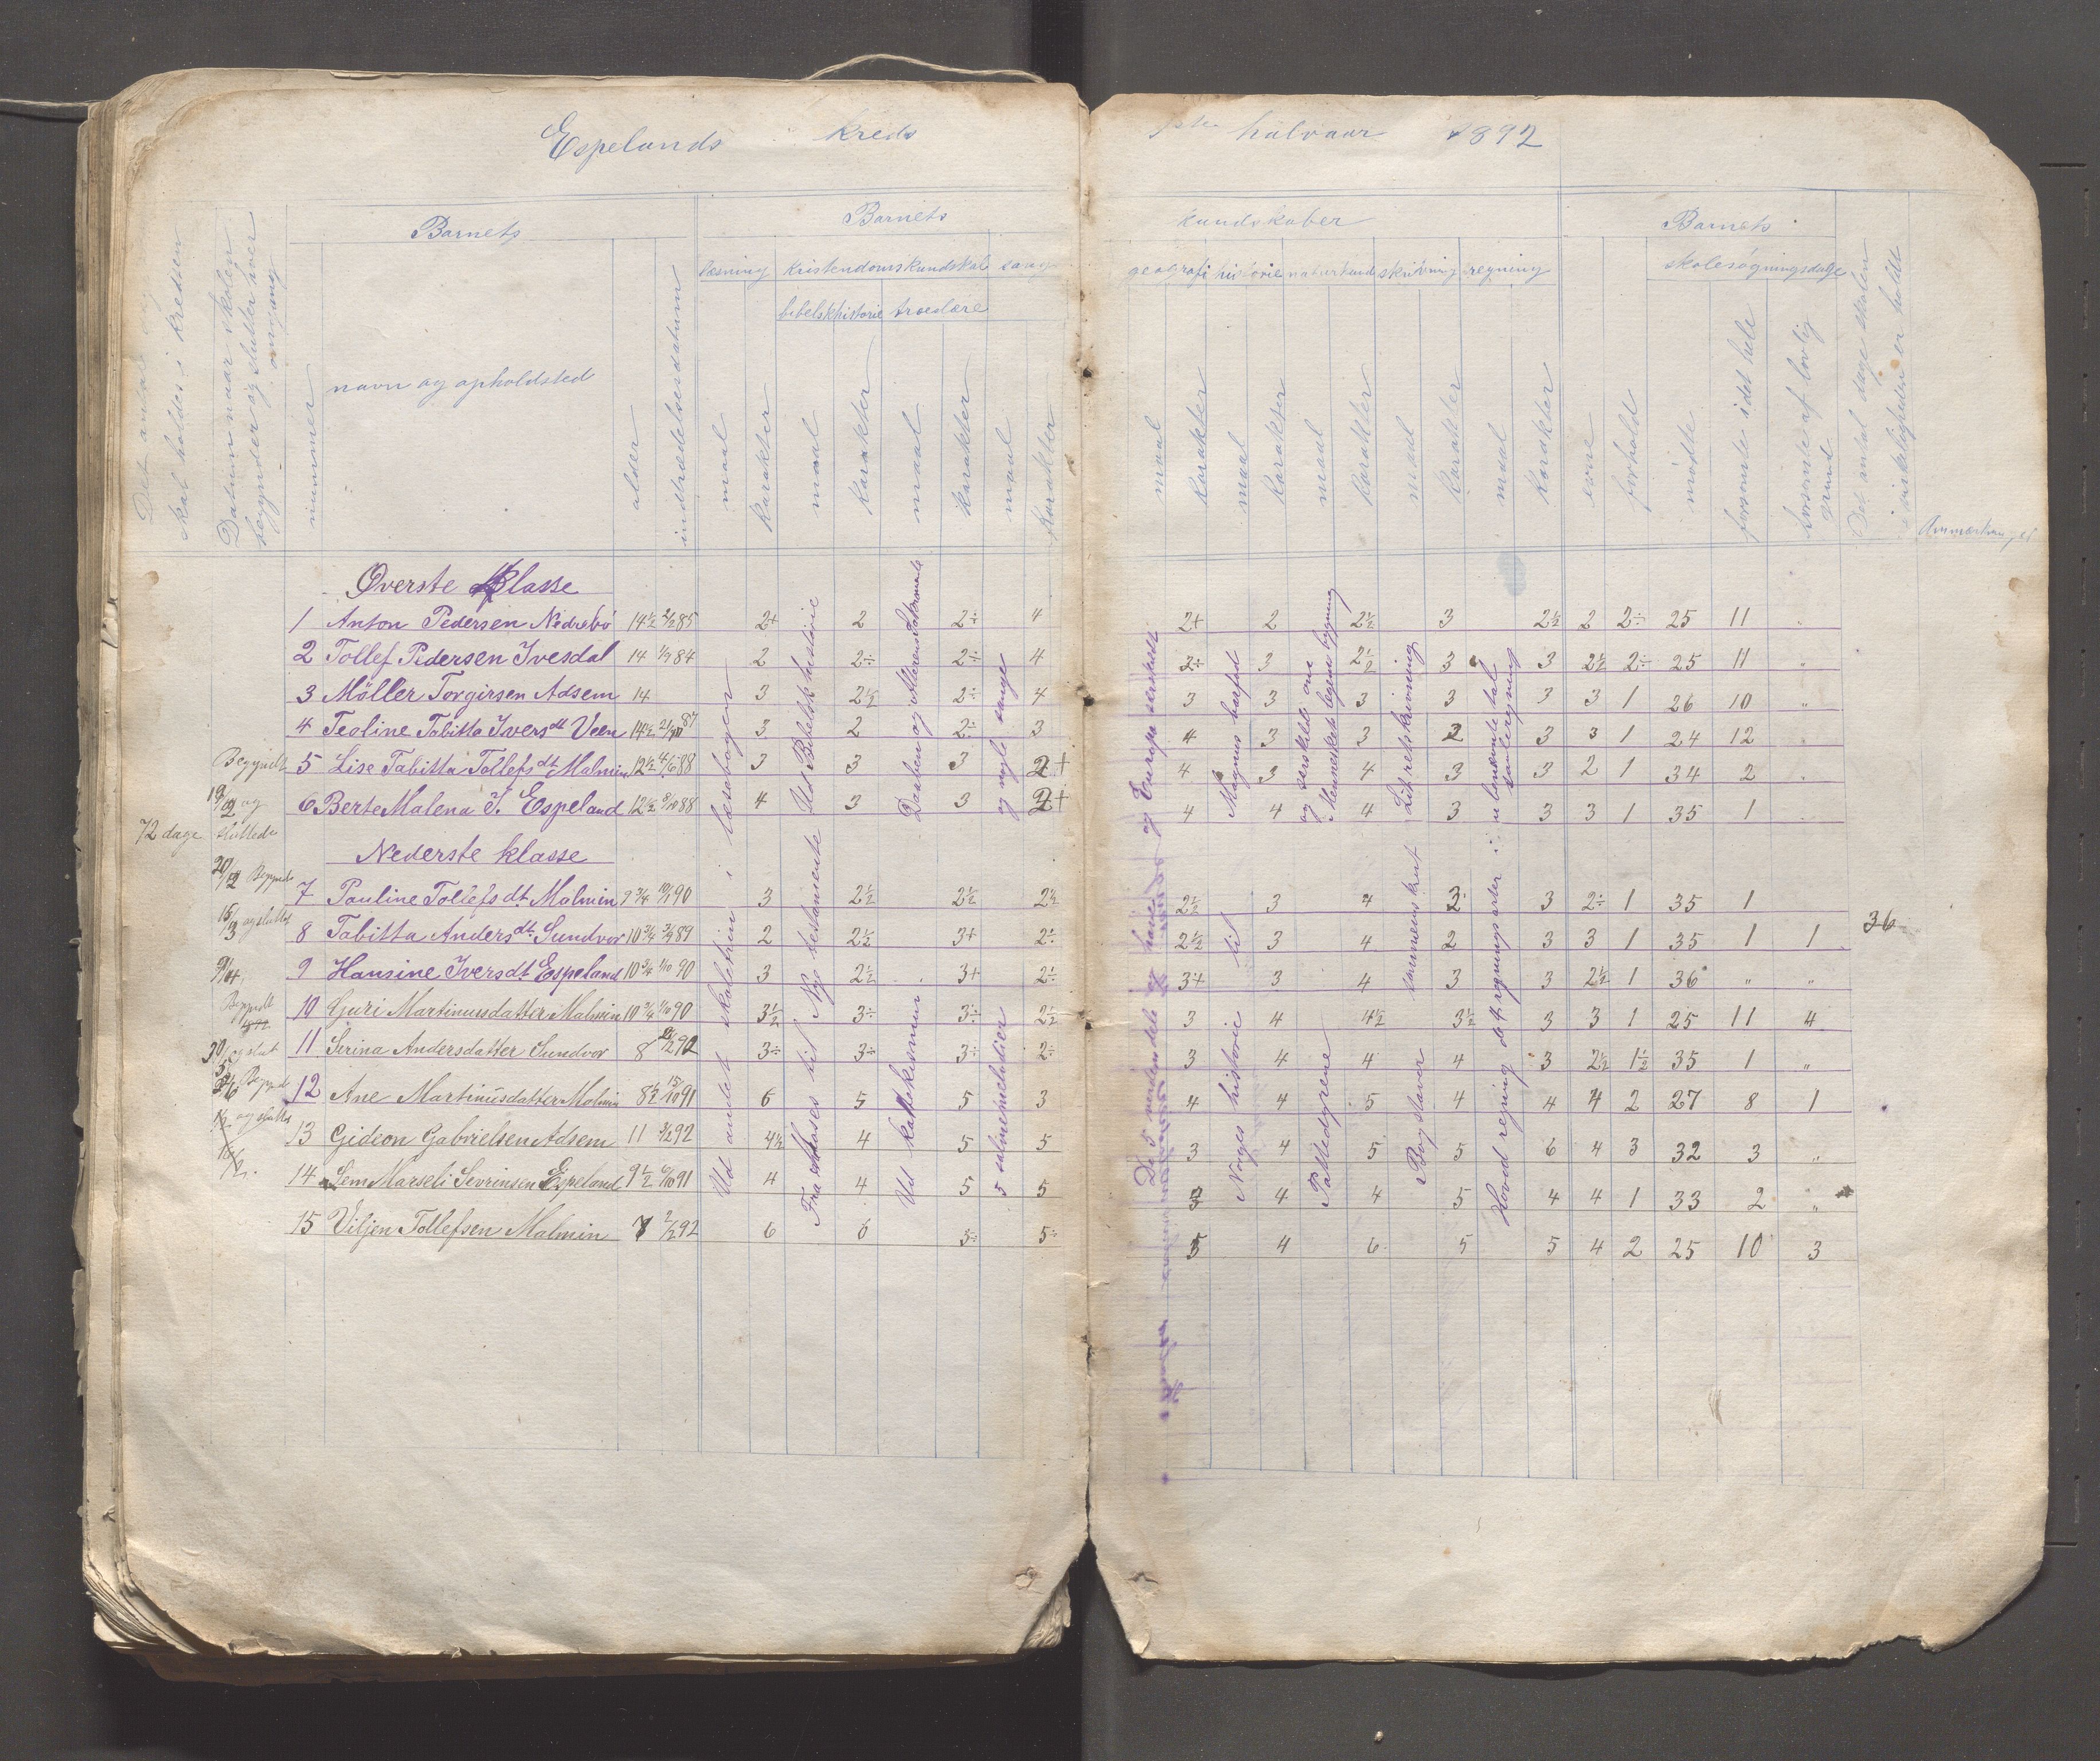 Espelands kreds 1ste halvaar 1892
Det antal dage skal holdes i kredsen
Datum naar skolen begynder og slutter hver omgang
nummer
Barnets
navn og opholdsted
alder
indtrædelsesdatum
Barnets kundskaber
læsning kristendomskundskab sang
bibelskhistorie troeslære
maal karakter maal karakter maal karakter maal karakter
geografi historie naturkunde skrivning regning
maal karakter maal karakter maal karakter maal karakter maal karakter
evne forhold
Barnets skolesøgningsdage
mødte
forsømte i det hele
forsømte af lovlig grund
Det antal dage skolen i virkeligheden er holdt
Anmærkninger
Øverste klasse
1 Anton Pedersen Nedrebø 14½ 2/2 85 2+ 2 2÷ 4 2+ 2 2½ 3 2½ 2 2÷ 25 11 "
2 Tollef Pedersen Ivesdal 14 1/9 84 2 2÷ 2÷ 4 2+ 3 2½ 3 3 2½ 2÷ 25 11 "
3 Møller Torgirsen Adsem 14 3 2½ 2÷ 4 3 3 3 3 3 3 1 26 10 "
4 Teoline Tabitta Ivers dt Veen 14½ 21/10 87 3 2 2÷ 3 4 3 3 2 3 3 1 24 12
5 Lise Tabitta Tollefs dt Malmin 12½ 4/6 88 3 3 3 2+ 4 3 4 3 3 2 1 34 2
6 Berte Malena I. Espeland 12½ 8/10 88 4 3 3 2+ 4 4 4 3 3 3 1 35 1
Nederste klasse
7 Pauline Tollefs dt. Malmin 9¾ 10/1 90 3 2½ 2½ 2½ 2½ 3 4 2 3 2÷ 1 35 1
8 Tabitta Anders dt. Sundvor 10¾ 3/9 89 2 2½ 3+ 2÷ 2½ 3 4 2 3 3 1 35 1 1 36
9 Hansine Ivers dt Espeland 10¾ 1/10 90 3 2½ 3+ 2÷ 3+ 3 4 3 3 2½ 1 36 " "
10 Guri Martinusdatter Malmin 10¾ 1/10 90 3½ 3÷ 3÷ 2½ 3 4 4½ 3½ 3 3 1 25 11 4
11 Serina Andersdatter Sundvor 8 3÷ 3÷ 3÷ 2÷ 3 4 4 4 3 2½ 1½ 35 1 "
12 Ane Martinusdatter Malmin 8½ 15/10 91 6 5 5 3 4 4 5 4 4 4 2 27 8 1
13 Gideon Gabrielsen Adsem 11 3/2 92 4½ 4 5 5 3 4 5 5 6 4 3 32 3 "
14 Sem Marseli Sevrinsen Espeland 9½ 6/10 91 4 4 5 5 3 4 4 5 4 4 1 33 2 "
15 Viljen Tollefsen Malmin 7 2/2 92 6 6 5÷ 5÷ 5 4 6 5 5 4 2 25 10 3
72 dage
Begyndt
19/2 og
sluttede
Begyndt
15/3 og sluttet
9/4
Begyndt
30/5 og slut
og sluttet
Ud andet skoletrin i læsebogen
Fra Moses til Nye testamente Ud Bibelsk historie
Ud katekismen Daaben og Alterens Sakramente
5 salmemelodier og nogle sange
og Europa særskilt
Norges historie til Magnus barfod
Pattedyrene og særskilt om Menneskets legems bygning
Bogstaver sammenskrut Lit retskrivning
Hoved regning de 4 regningsarter i ubenævnte tal